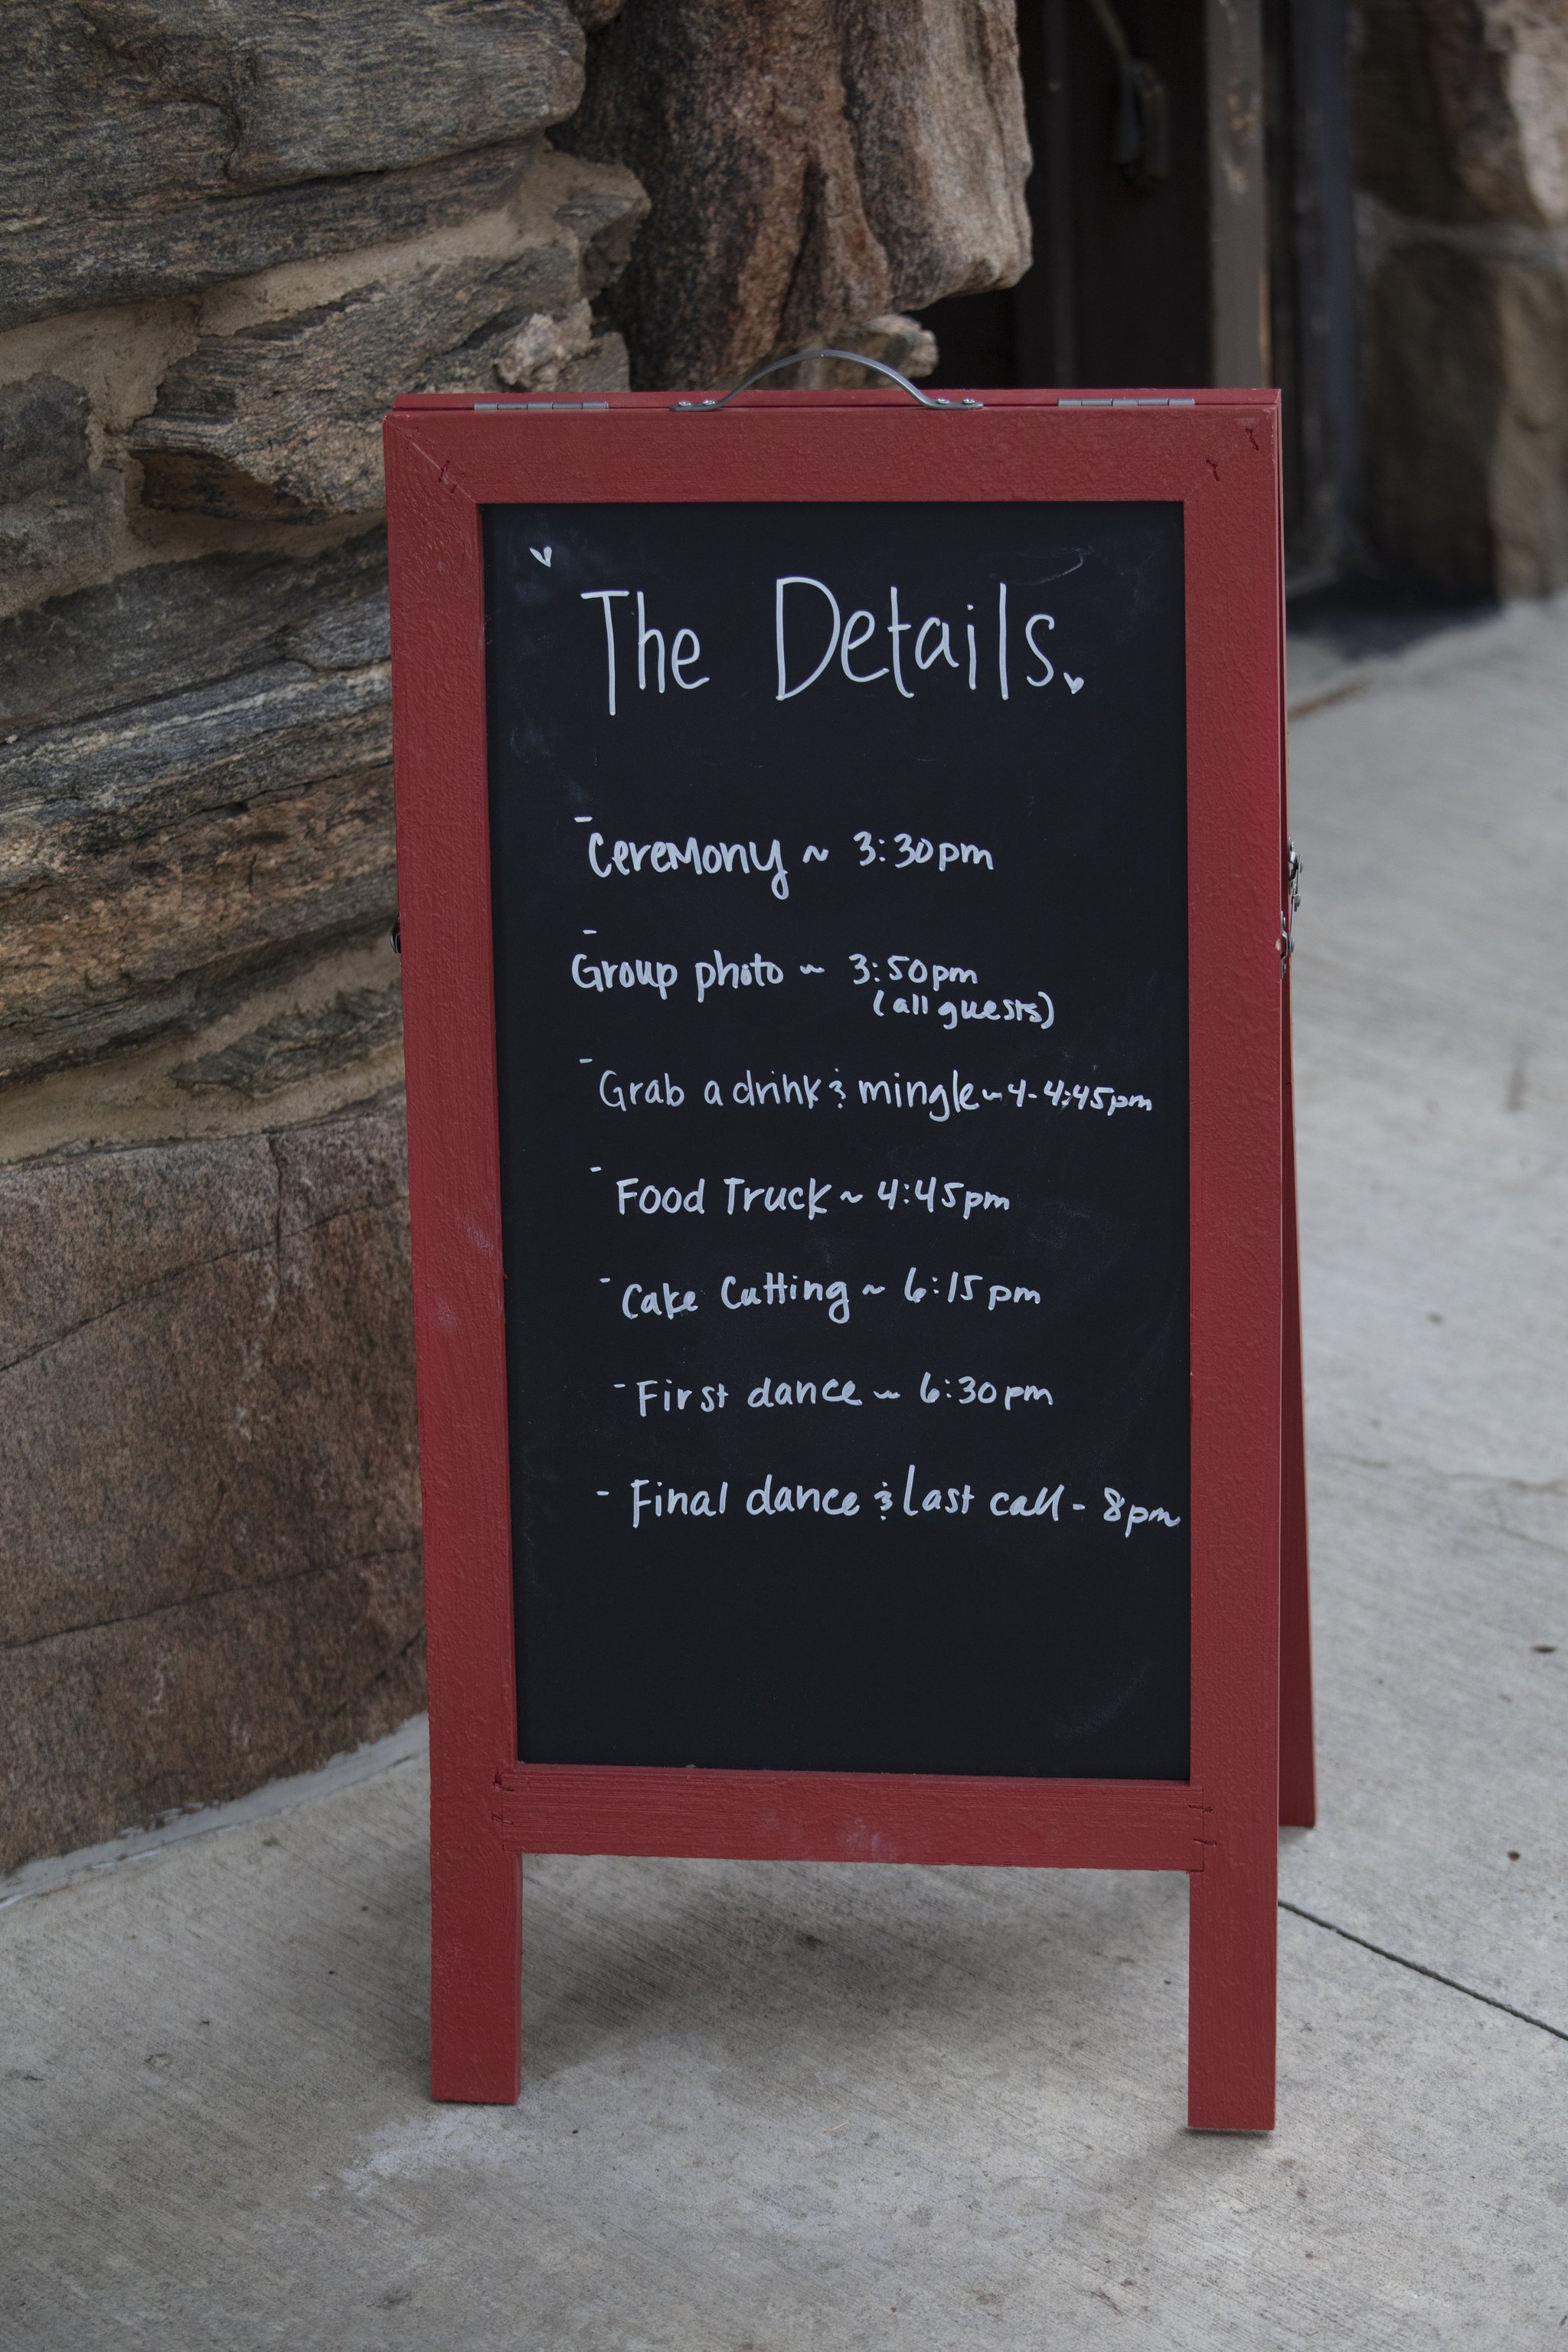 The Details.
- Ceremony ~ 3:30pm
- Group photo ~ 3:50pm
(all guests)
- Grab a drink & mingle ~ 4-4:45pm
- Food Truck ~ 4:45pm
- Cake Cutting ~ 6:15pm
- First dance ~ 6:30pm
- Final dance & last call - 8pm